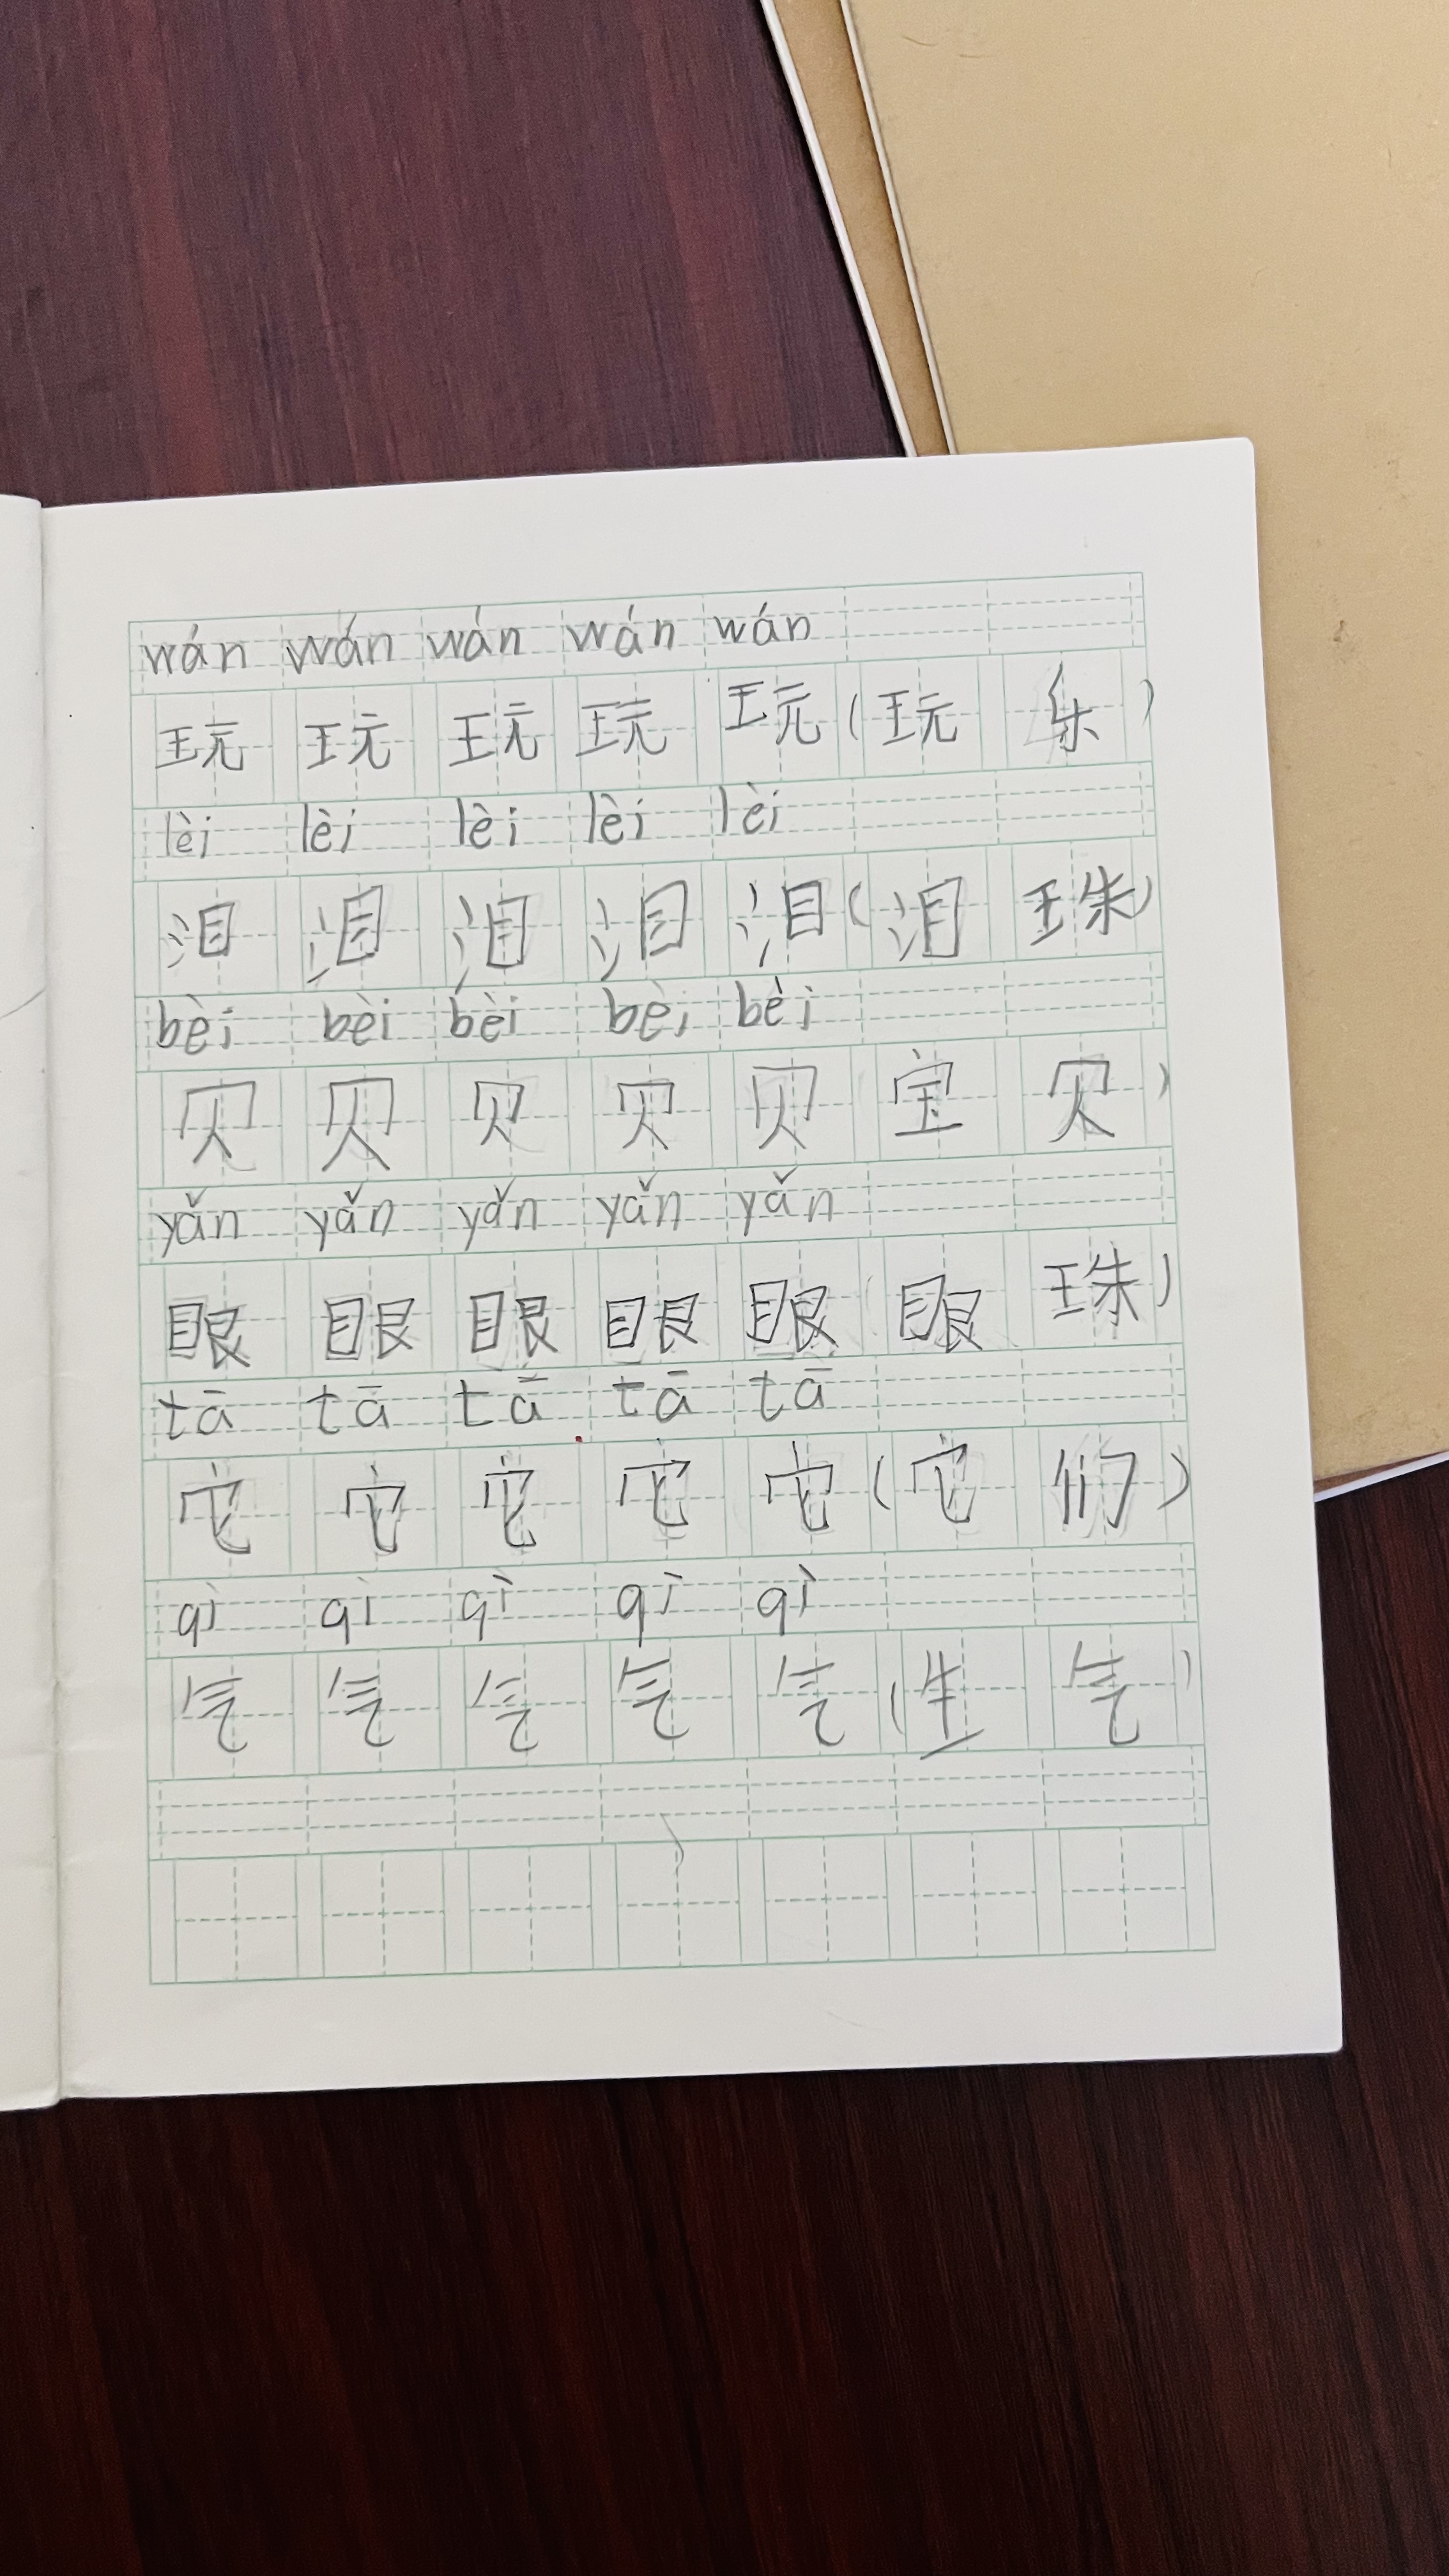 wán wán wán wán wán
玩 玩 玩 玩 玩(玩 乐)
lèi lèi lèi lèi lèi
泪 泪 泪 泪 泪(泪 珠)
bèi bèi bèi bèi bèi
贝 贝 贝 贝 贝 宝 贝)
yǎn yǎn yǎn yǎn yǎn
眼 眼 眼 眼 眼(眼 珠)
tā tā tā tā tā
它 它 它 它 它(它 们)
qì qì qì qì qì
气 气 气 气 气(生 气)